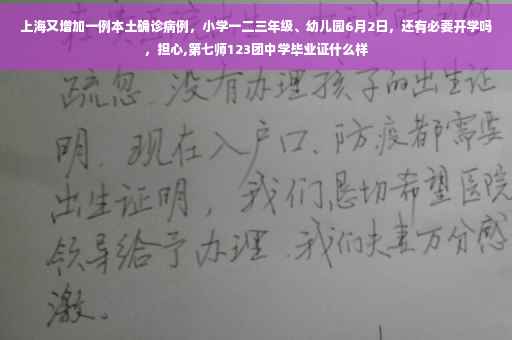 上海又增加一例本土确诊病例，小学一二三年级、幼儿园6月2日，还有必要开学吗
，担心,第七师123团中学毕业证什么样
疏忽、没有办理孩子的出生证
明、现在入户口、防疫都需要
出生证明，我们恳切希望医院
领导给予办理、我们夫妻万分感
激。